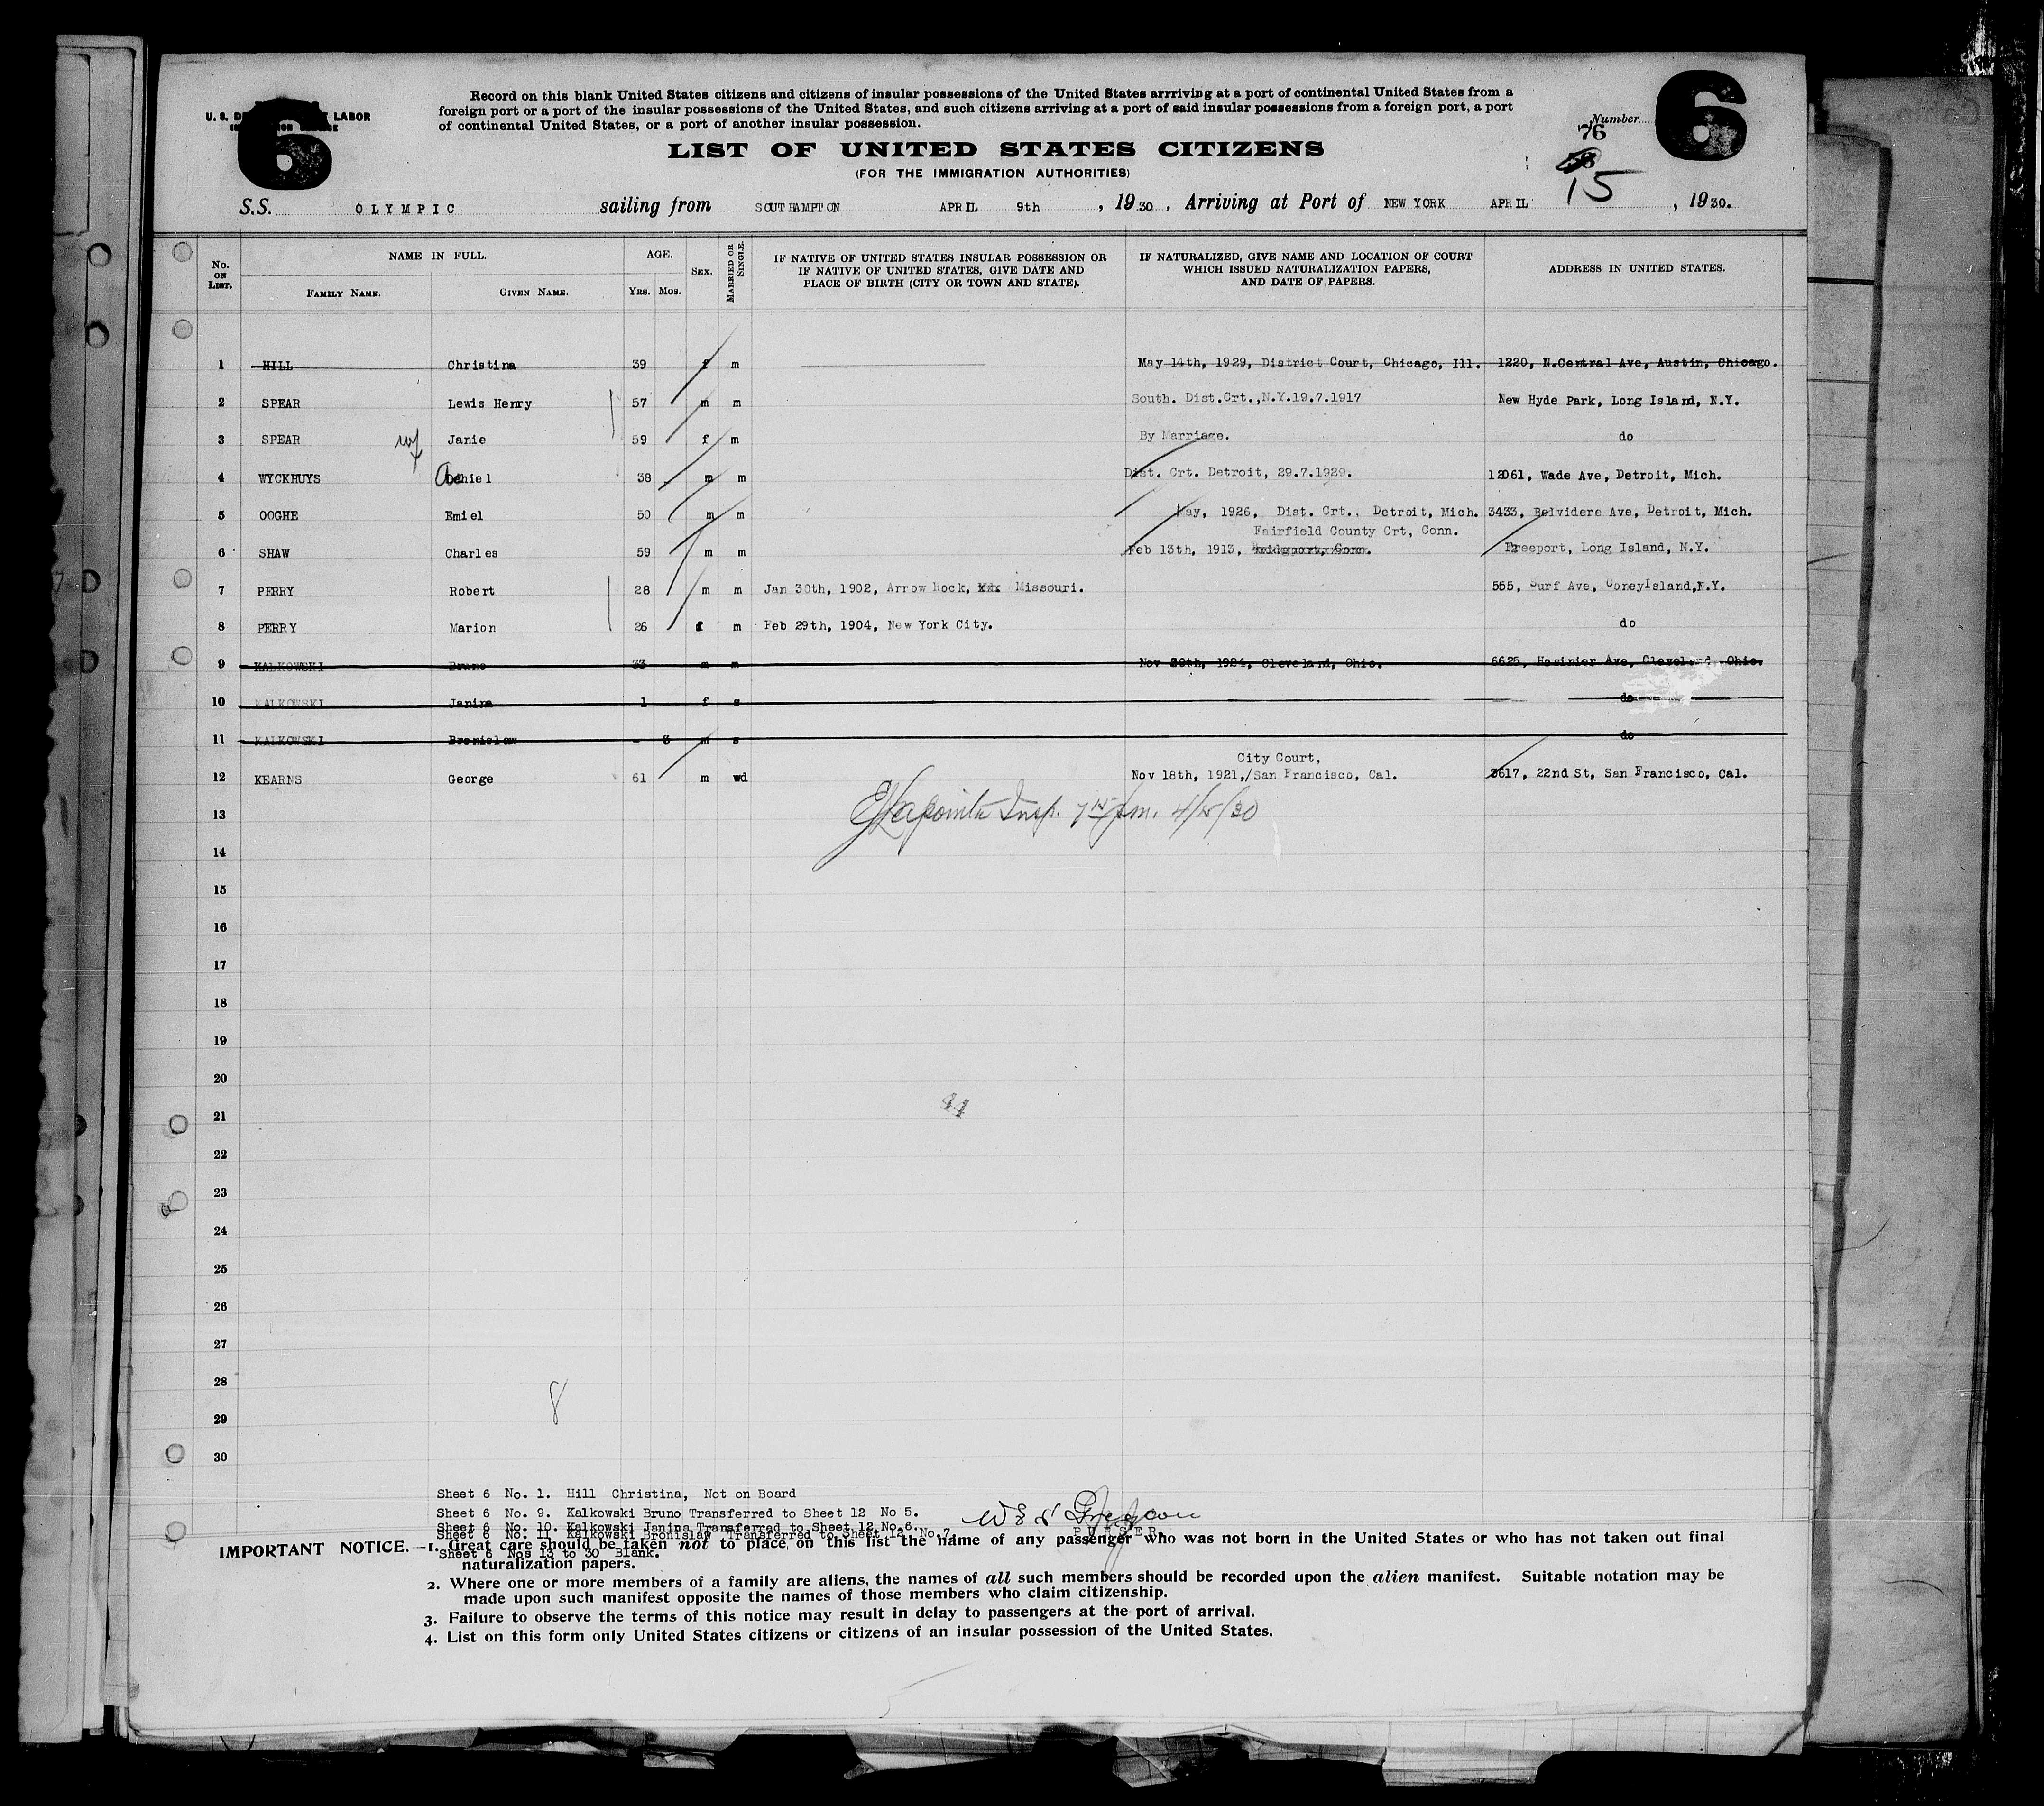 Record on this blank United States citizens and citizens of insular possessions of the United States arrriving at a port of continental United States from a
foreign port or a port of the insular possessions of the United States, and such citizens arriving at a port of said insular possessions from a foreign port, a port
of continental United States, or a port of another insular possession.
U. S. LABOR
6
6
Number
76
LIST OF UNITED STATES CITIZENS
(FOR THE IMMIGRATION AUTHORITIES)
15
S.S. OLYMPIC sailing from SOUTHAMPTON APRIL 9th , 1930 , Arriving at Port of NEW YORK APRIL , 1930.
No. ON LIST. NAME IN FULL. AGE. SEX. MARRIED OR SINGLE. IF NATIVE OF UNITED STATES INSULAR POSSESSION OR IF NATIVE OF UNITED STATES, GIVE DATE AND PLACE OF BIRTH (CITY OR TOWN AND STATE). IF NATURALIZED, GIVE NAME AND LOCATION OF COURT WHICH ISSUED NATURALIZATION PAPERS, AND DATE OF PAPERS. ADDRESS IN UNITED STATES.
FAMILY NAME. GIVEN NAME. YRS. MOS.
1 HILL Christina 39 f m May 14th, 1929, District Court, Chicago, Ill. 1220, N.Central Ave, Austin, Chicago.
2 SPEAR Lewis Henry 57 m m South. Dist.Crt.,N.Y.19.7.1917 New Hyde Park, Long Island, N.Y.
3 SPEAR wf Janie 59 f m By Marriage. do
4 WYCKHUYS 38 m m Dist. Crt. Detroit, 29.7.1929. 12061, Wade Ave, Detroit, Mich.
5 OOGHE Emiel 50 m m May, 1926, Dist. Crt., Detroit, Mich. 3433, Belvidere Ave, Detroit, Mich.
Fairfield County Crt, Conn.
6 SHAW Charles 59 m m Feb 13th, 1913, Bridgeport, Conn. Freeport, Long Island, N.Y.
7 PERRY Robert 28 m m Jan 30th, 1902, Arrow Rock, Missouri. 555, Surf Ave, ConeyIsland,N.Y.
8 PERRY Marion 26 f m Feb 29th, 1904, New York City. do
9 KALKOWSKI Bruno 33 m m Nov 20th, 1924, Cleveland, Ohio. 6625, Ave, Cleveland, Ohio.
10 KALKOWSKI Janina 1 f s do
11 KALKOWSKI Bronislaw - 3 m s do
City Court,
12 KEARNS George 61 m wd Nov 18th, 1921,/San Francisco, Cal. 3617, 22nd St, San Francisco, Cal.
13 Insp. 4/15/30
14
15
16
17
18
19
20
21
44
22
23
24
25
26
27
28
8
29
30
Sheet 6 No. 1. Hill Christina, Not on Board
Sheet 6 No. 9. Kalkowski Bruno Transferred to Sheet 12 No 5.
Sheet 6 No. 10. Kalkowski Janina Transferred to Sheet 12 No.6.
Sheet 6 No. 11 Kalkowski Bronislaw Transferred to Sheet 12, No.7.
PURSER.
IMPORTANT NOTICE.—1. Great care should be taken not to place on this list the name of any passenger who was not born in the United States or who has not taken out final
Sheet 6 Nos 13 to 30 Blank.
naturalization papers.
2. Where one or more members of a family are aliens, the names of all such members should be recorded upon the alien manifest. Suitable notation may be
made upon such manifest opposite the names of those members who claim citizenship.
3. Failure to observe the terms of this notice may result in delay to passengers at the port of arrival.
4. List on this form only United States citizens or citizens of an insular possession of the United States.